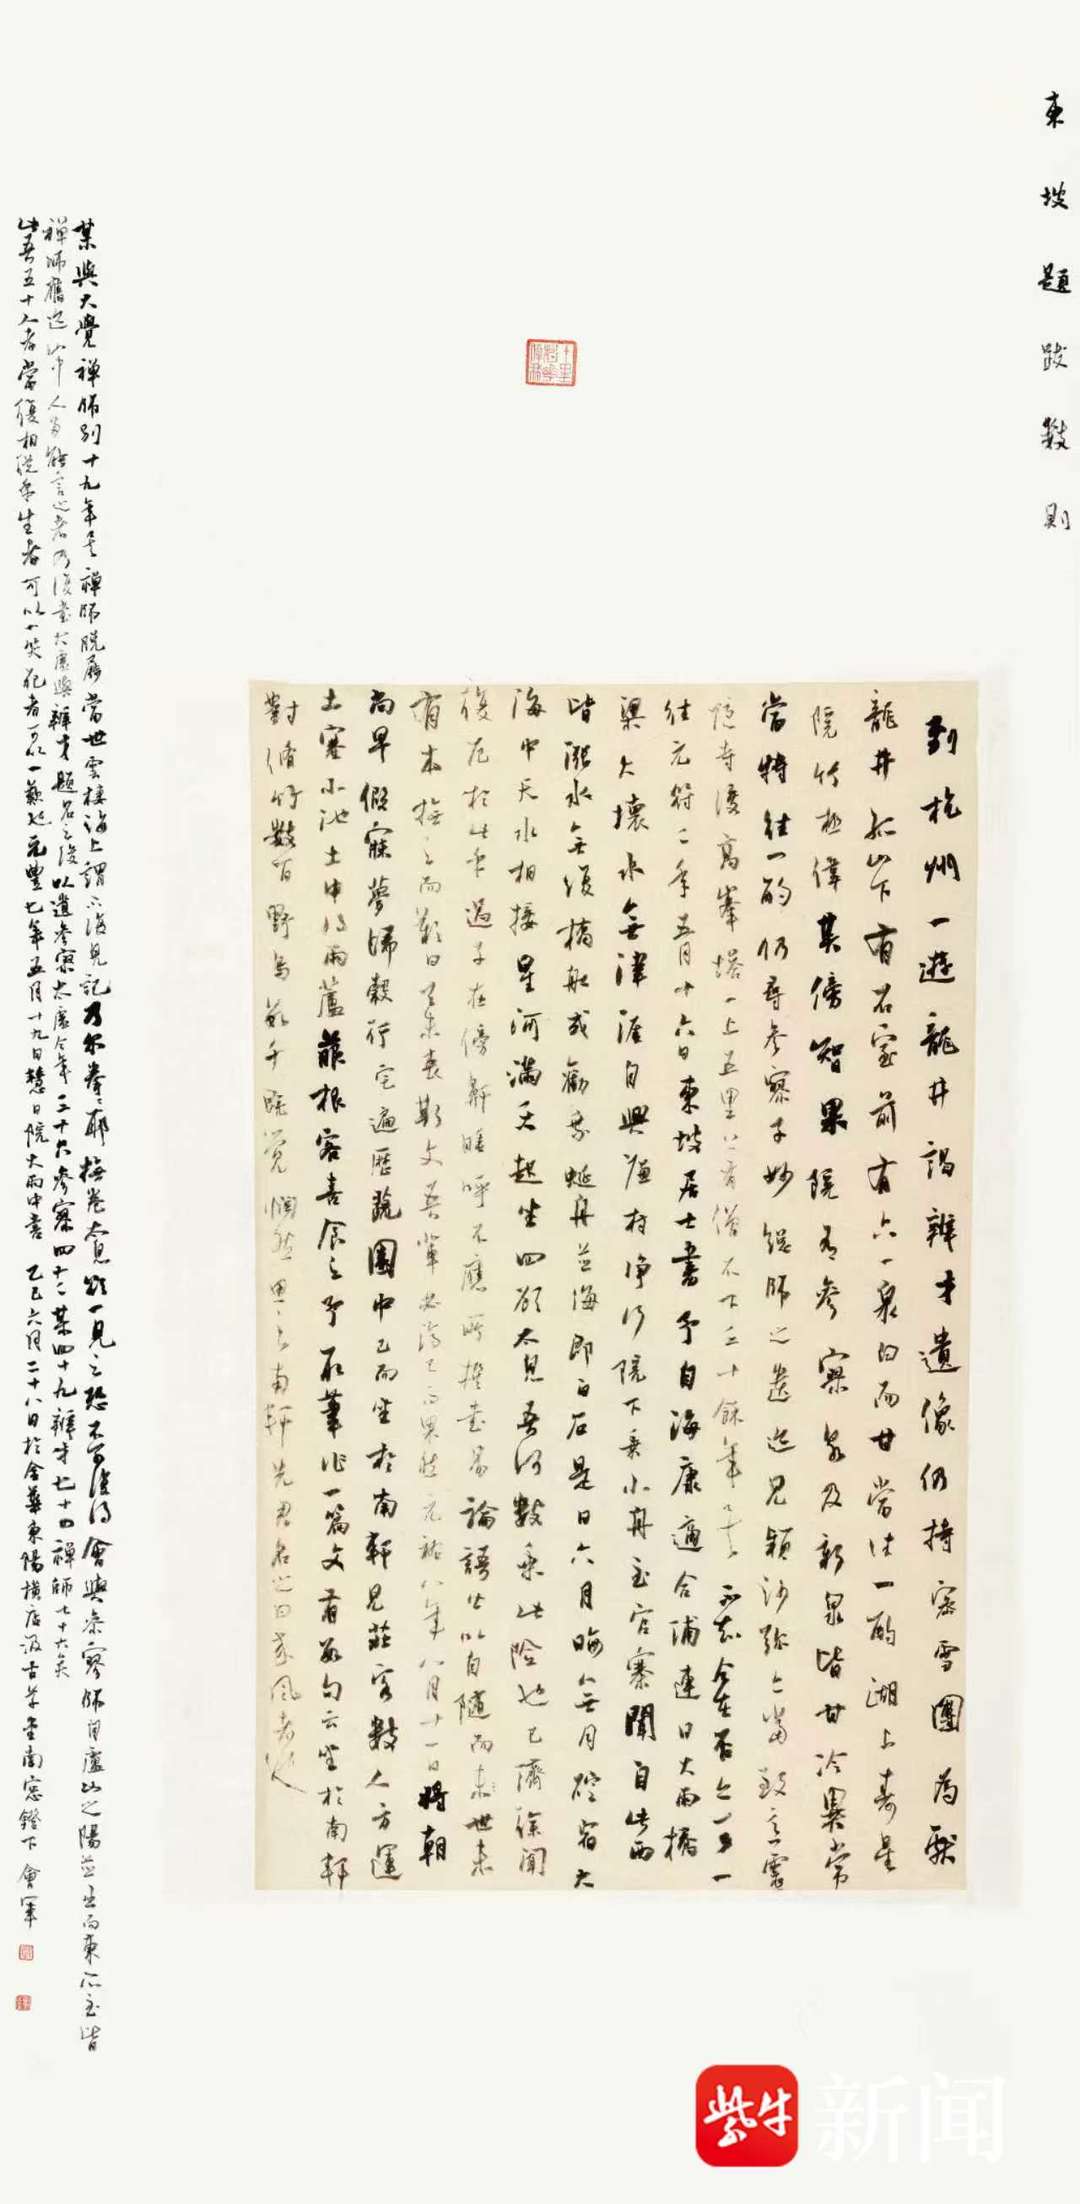 東坡題跋數則
到杭州一遊龍井謁辯才遺像仍持密雲團為獻
龍井孤山下有石室前有六一泉白而甘當往一酌湖上壽星
院竹極偉其傍智果院有參寥泉及新泉皆甘冷異常
當特往一酌仍尋參寥子妙總師之遺迹見穎沙彌亦當致意靈
隱寺後高峯塔一上五里上有僧不下三十餘年矣不知今在否亦可一
往元符二年五月十六日東坡居士書予自海康適合浦連日大雨橋
梁大壞水無津涯自興廉村淨行院下乘小舟至官寨聞自此西
皆漲水無復橋船或勸乘蜑舟並海即白石是日六月晦無月碇宿大
海中天水相接星河滿天起坐四顧太息吾何數乘此險也已濟徐聞
復厄於此乎過子在傍鼾睡呼不應所撰書易論語皆以自隨而世未
有本撫之而歎曰天未喪斯文吾輩必濟已而果然元祐八年八月十一日將朝
尚早假寐夢歸縠行宅遍歷蔬園中已而坐於南軒見莊客數人方運
土塞小池土中得兩蘆菔根客喜食之予取筆作一篇文有數句云坐於南軒
對脩竹數百野鳥數千既覺惘然思之南軒先君名之曰來風者也
某與大覺禪師別十九年矣禪師脫屣當世雲棲海上謂不復見記乃爾拳拳耶撫卷太息欲一見之恐不可復得會與參寥師自廬山之陽並出而東所至皆
禪師舊迹山中人多能言之者乃復書太虛與辯才題名之後以遺參寥太虛今年三十六參寥四十二某四十九辯才七十四禪師七十六矣
此吾五十人者當復相從乎生者可以一笑死者可以一歎也元豐七年五月十九日慧日院大雨中書 乙巳六月二十八日於金華東陽橫店汲古草堂南窓鐙下 會軍
紫牛新闻